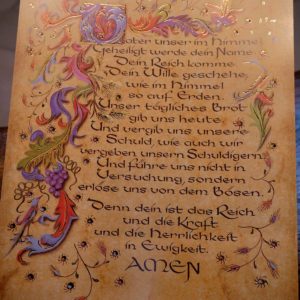 Vater unser im Himmel
Geheiligt werde dein Name
Dein Reich komme
Dein Wille geschehe,
wie im Himmel
so auf Erden.
Unser tägliches Brot
gib uns heute
Und vergib uns unsere
Schuld, wie auch wir
vergeben unsern Schuldigern
Und führe uns nicht in
Versuchung, sondern
erlöse uns von dem Bösen.
Denn dein ist das Reich
und die Kraft
und die Herrlichkeit
in Ewigkeit.
AMEN